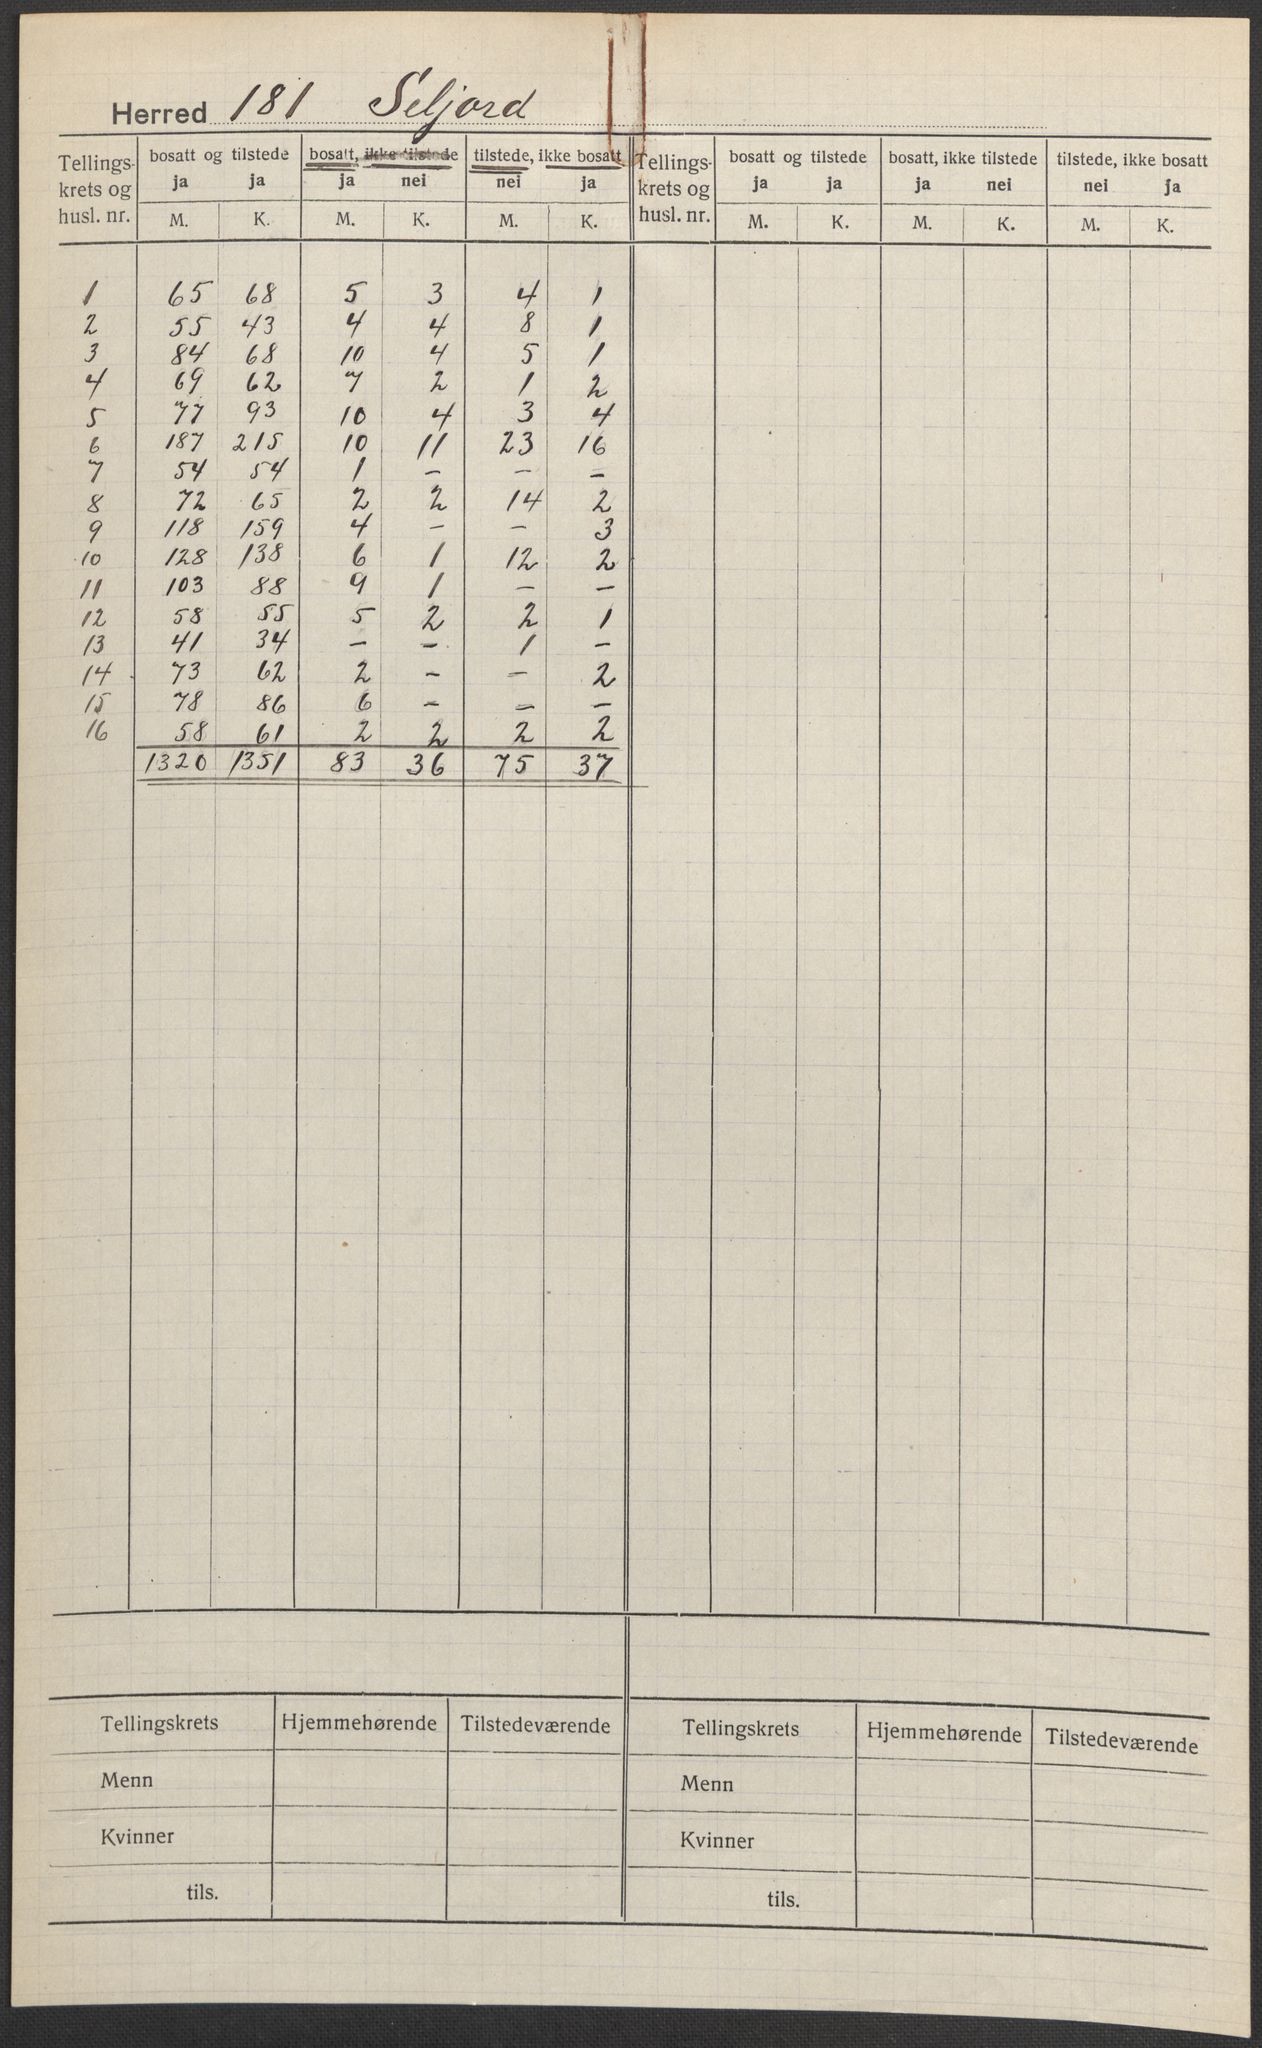 Herred 181 Seljord
Tellings- krets og husl. nr. | bosatt og tilstede | bosatt, ikke tilstede | tilstede, ikke bosatt | Tellings- krets og husl. nr. | bosatt og tilstede | bosatt, ikke tilstede | tilstede, ikke bosatt
ja ja ja nei nei ja ja ja ja nei nei ja
M. K. M. K. M. K. M. K. M. K. M. K.
1 65 68 5 3 4 1
2 55 43 4 4 8 1
3 84 68 10 4 5 1
4 69 62 7 2 1 2
5 77 93 10 4 3 4
6 187 215 10 11 23 16
7 54 54 1 – – –
8 72 65 2 2 14 2
9 118 159 4 – – 3
10 128 138 6 1 12 2
11 103 88 9 1 – –
12 58 55 5 2 2 1
13 41 34 – – 1 –
14 73 62 2 – – 2
15 78 86 6 – – –
16 58 61 2 2 2 2
1320 1351 83 36 75 37
Tellingskrets Hjemmehørende Tilstedeværende Tellingskrets Hjemmehørende Tilstedeværende
Menn Menn
Kvinner Kvinner
tils. tils.